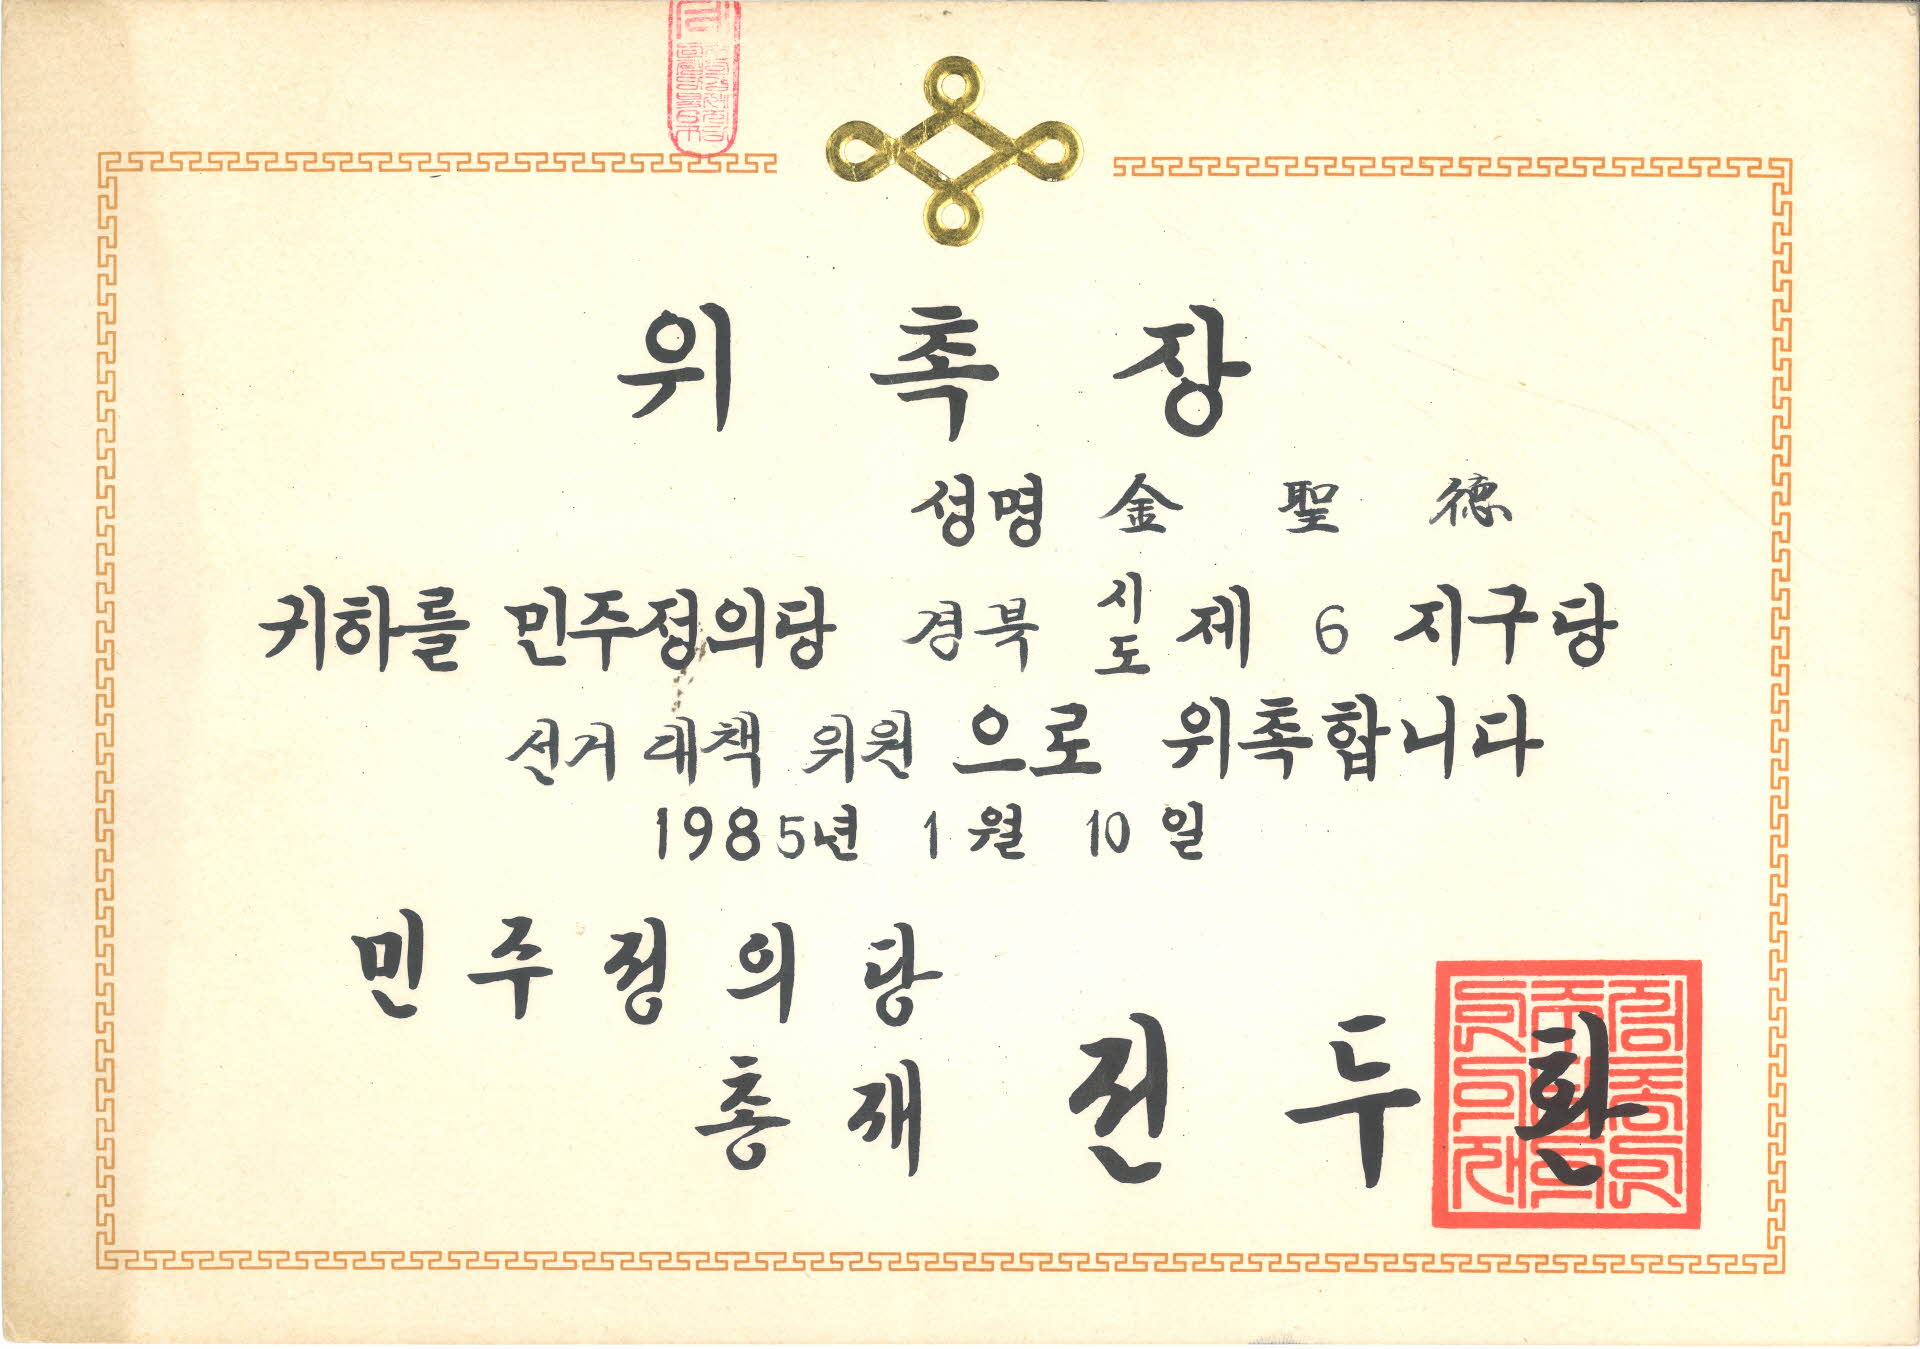 위 촉 장
성명 金 聖 德
귀하를 민주정의당 경북 시도 제 6 지구당
선거 대책 위원 으로 위촉합니다
1985년 1월 10일
민주정의당
총재 전두환